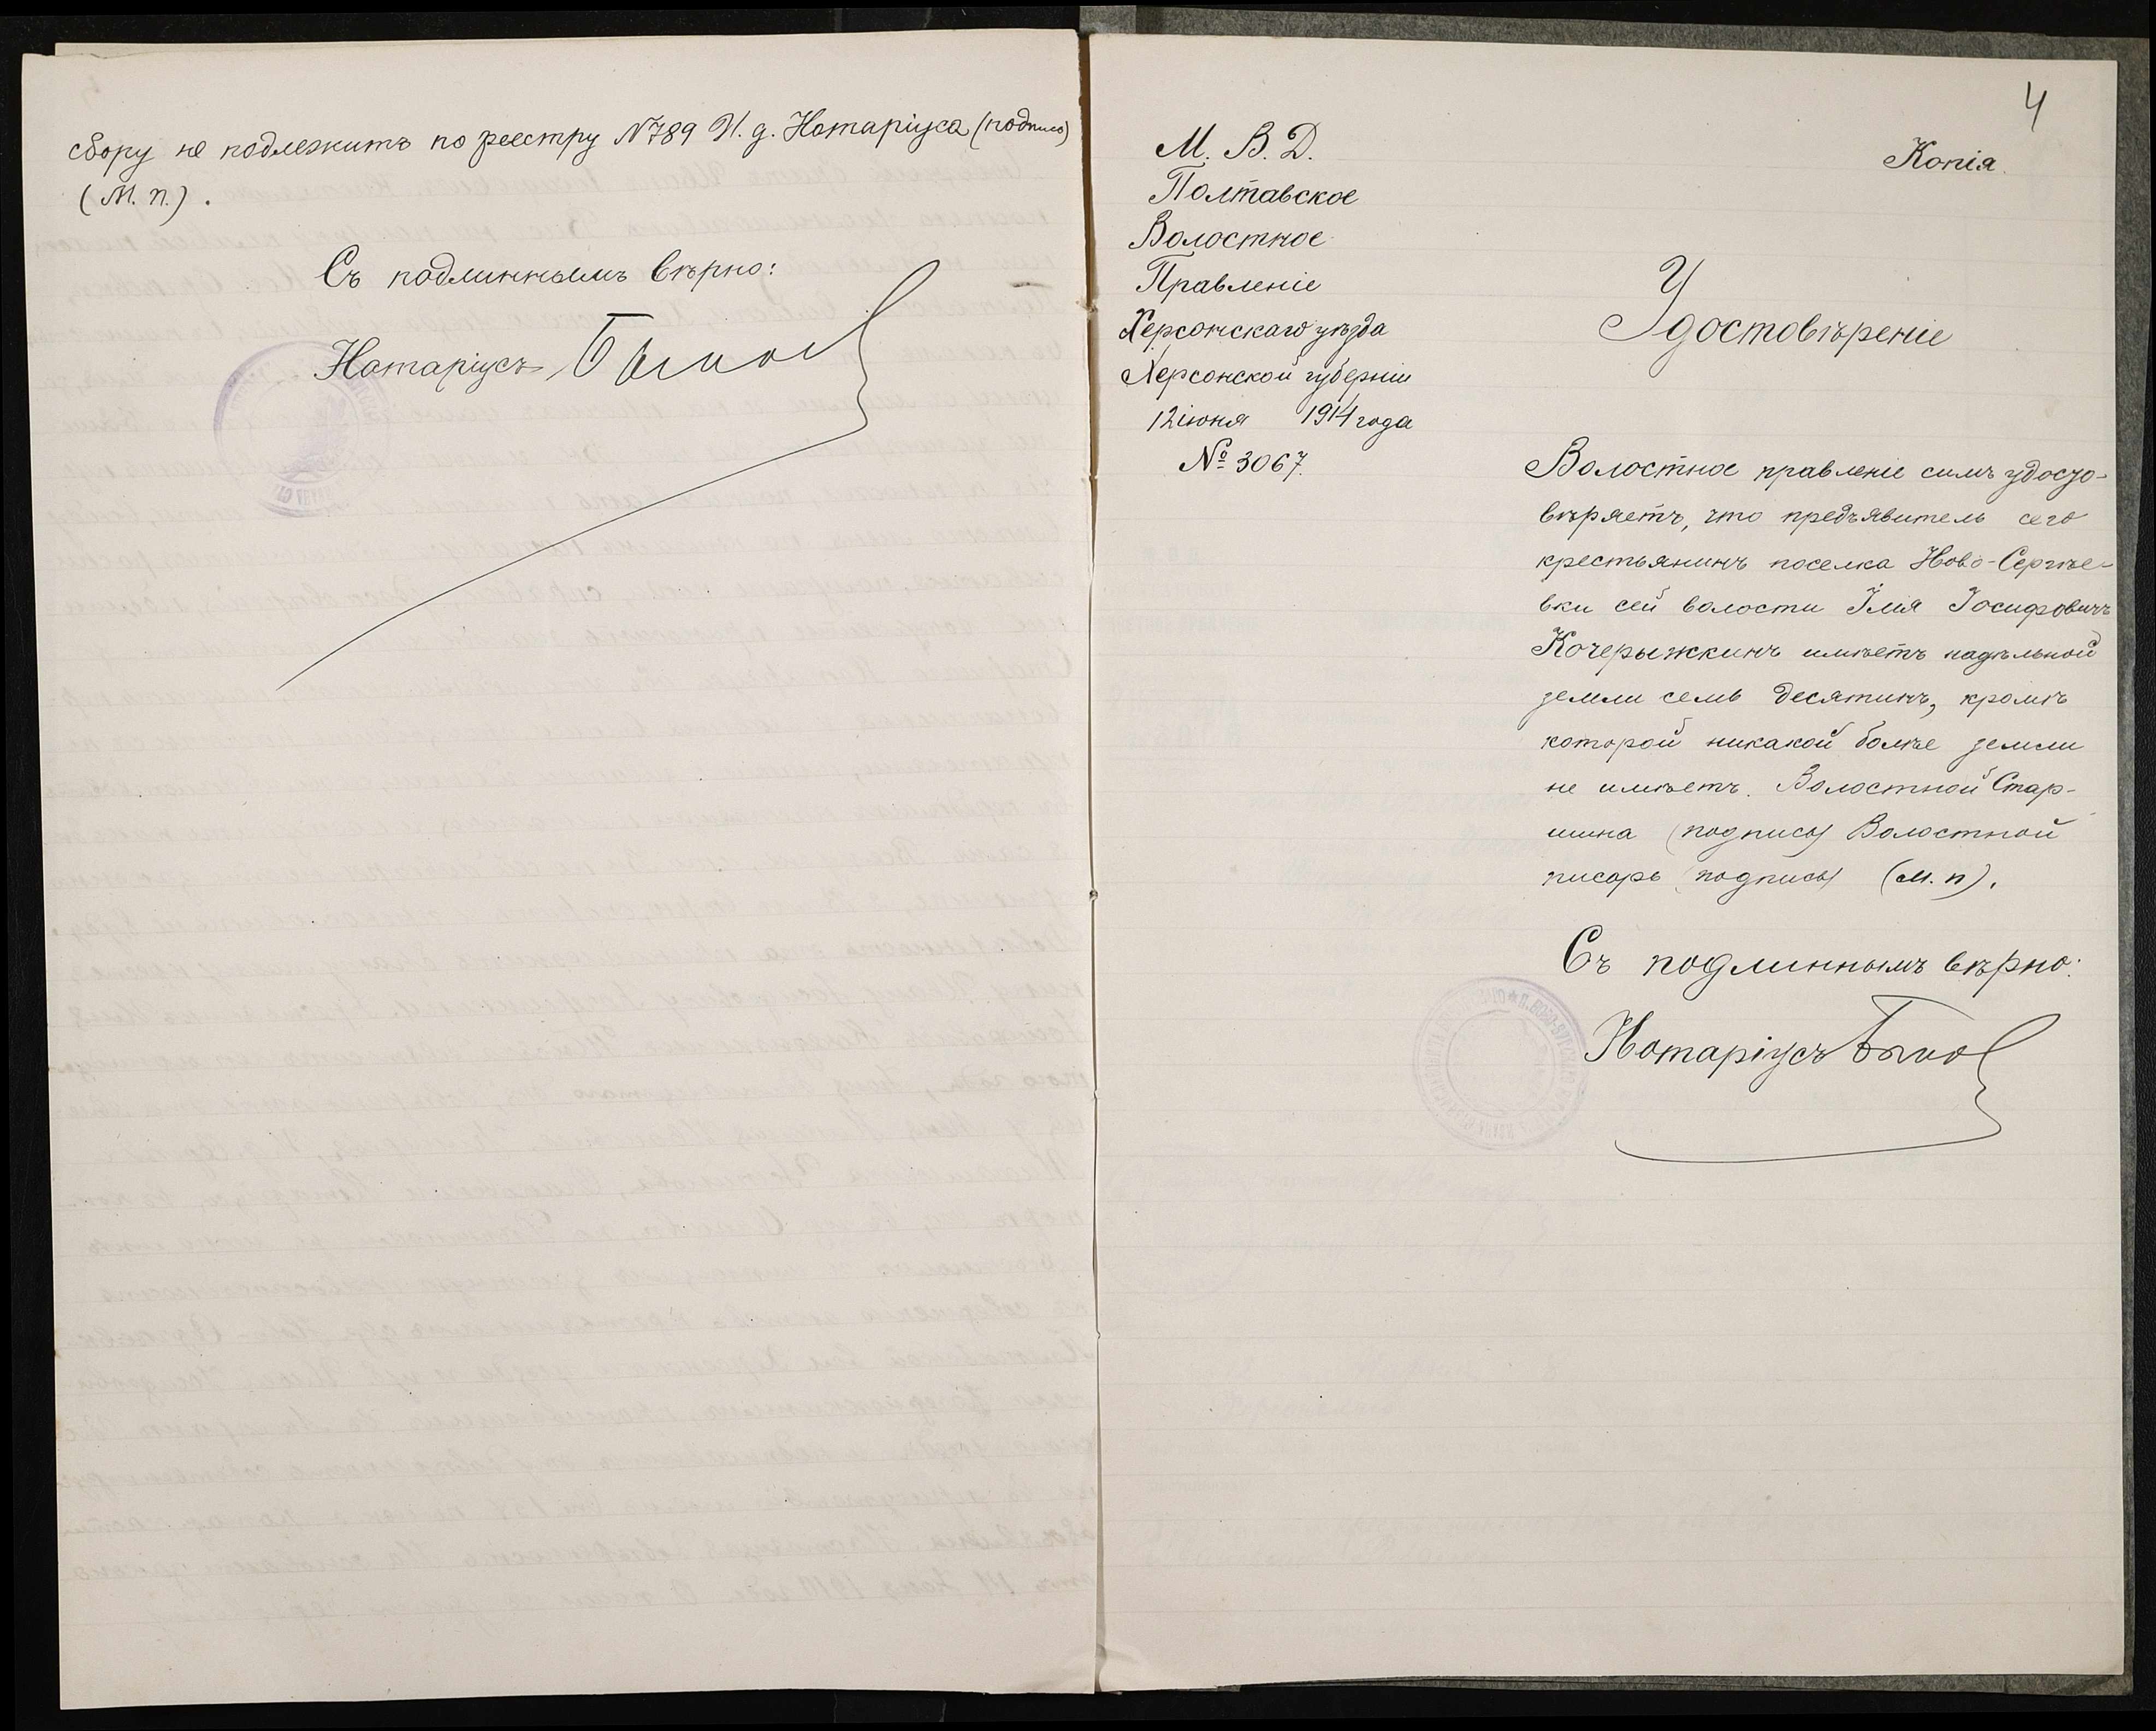 сбору не подлежитъ по реестру №789 И. д. Нотаріуса (подпись)
(М. п.).
Съ подлиннымъ вѣрно:
Нотаріусъ
4
Копія.
М. В. Д.
Полтавское
Волостное
Правленіе
Херсонскаго уѣзда
Херсонской губерніи
12 іюня 1914 года
№ 3067.
Удостовѣреніе
Волостное правленіе симъ удосто-
вѣряетъ, что предъявитель сего
крестьянинъ поселка Ново-Сергѣе-
вки сей волости Илія Іосифовичъ
Кочерыжкинъ имѣетъ надѣльной
земли семь десятинъ, кромѣ
которой никакой болѣе земли
не имѣетъ. Волостной Стар-
шина (подпись) Волостной
писарь (подпись) (М. п).
Съ подлиннымъ вѣрно:
Нотаріусъ